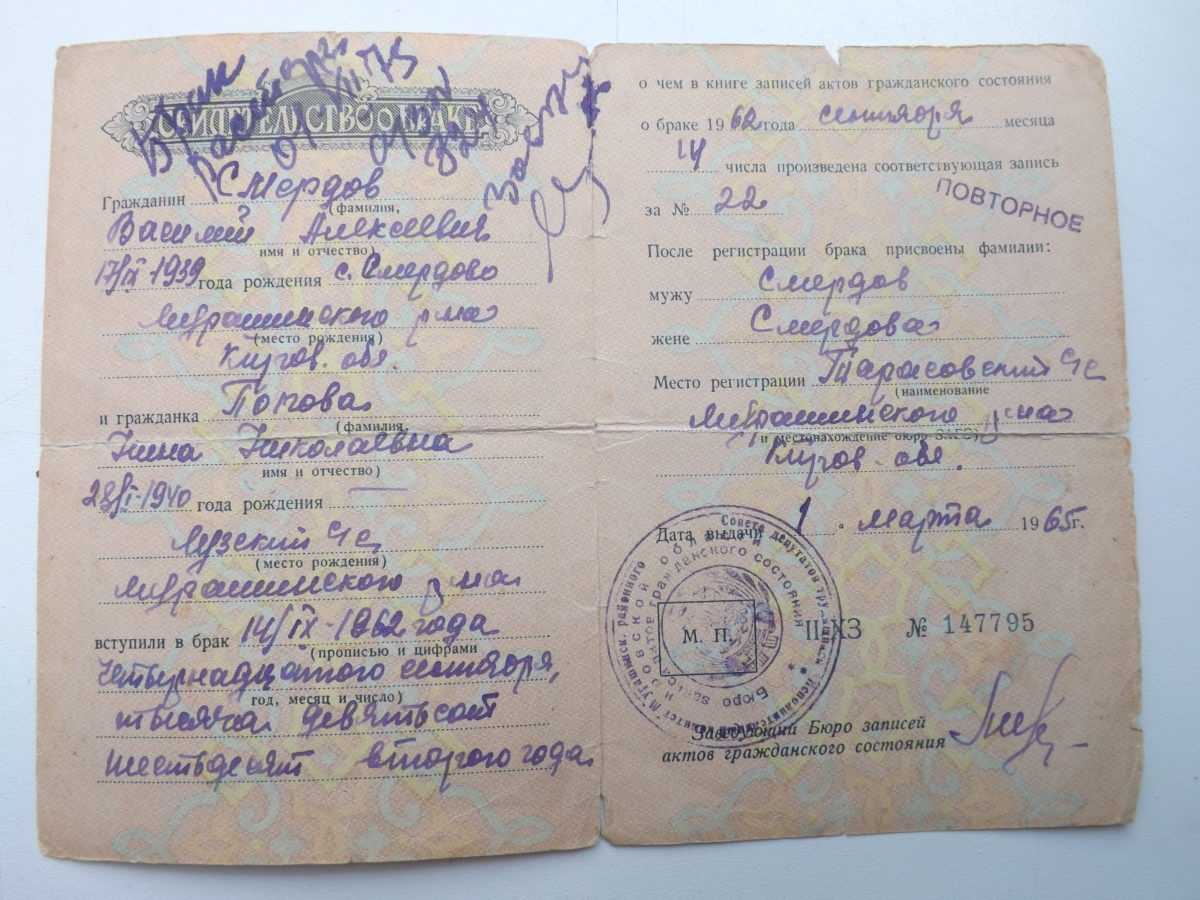 СВИДЕТЕЛЬСТВО О БРАКЕ
Брак
Гражданин Смердов
(фамилия,
Василий Алексеевич
имя и отчество)
17/IX-1939 года рождения с. Смердово
Мурашинского р-на
(место рождения)
Киров. обл.
и гражданка Попова
(фамилия,
Нина Николаевна
имя и отчество)
28/I-1940 года рождения
Лузский с/с
(место рождения)
Мурашинского р-на
вступили в брак 14/IX-1962 года
(прописью и цифрами
четырнадцатого сентября,
год, месяц и число)
тысяча девятьсот
шестьдесят второго года
о чем в книге записей актов гражданского состояния
о браке 1962 года сентября месяца
14 числа произведена соответствующая запись
за № 22
ПОВТОРНОЕ
После регистрации брака присвоены фамилии:
мужу Смердов
жене Смердова
Место регистрации Тарасовский с/с
(наименование
Мурашинского р-на
и местонахождение бюро ЗАГС)
Киров. обл.
Дата выдачи 1 " марта 1965 г.
М. П.
II-ХЗ № 147795
Заведующий Бюро записей
актов гражданского состояния